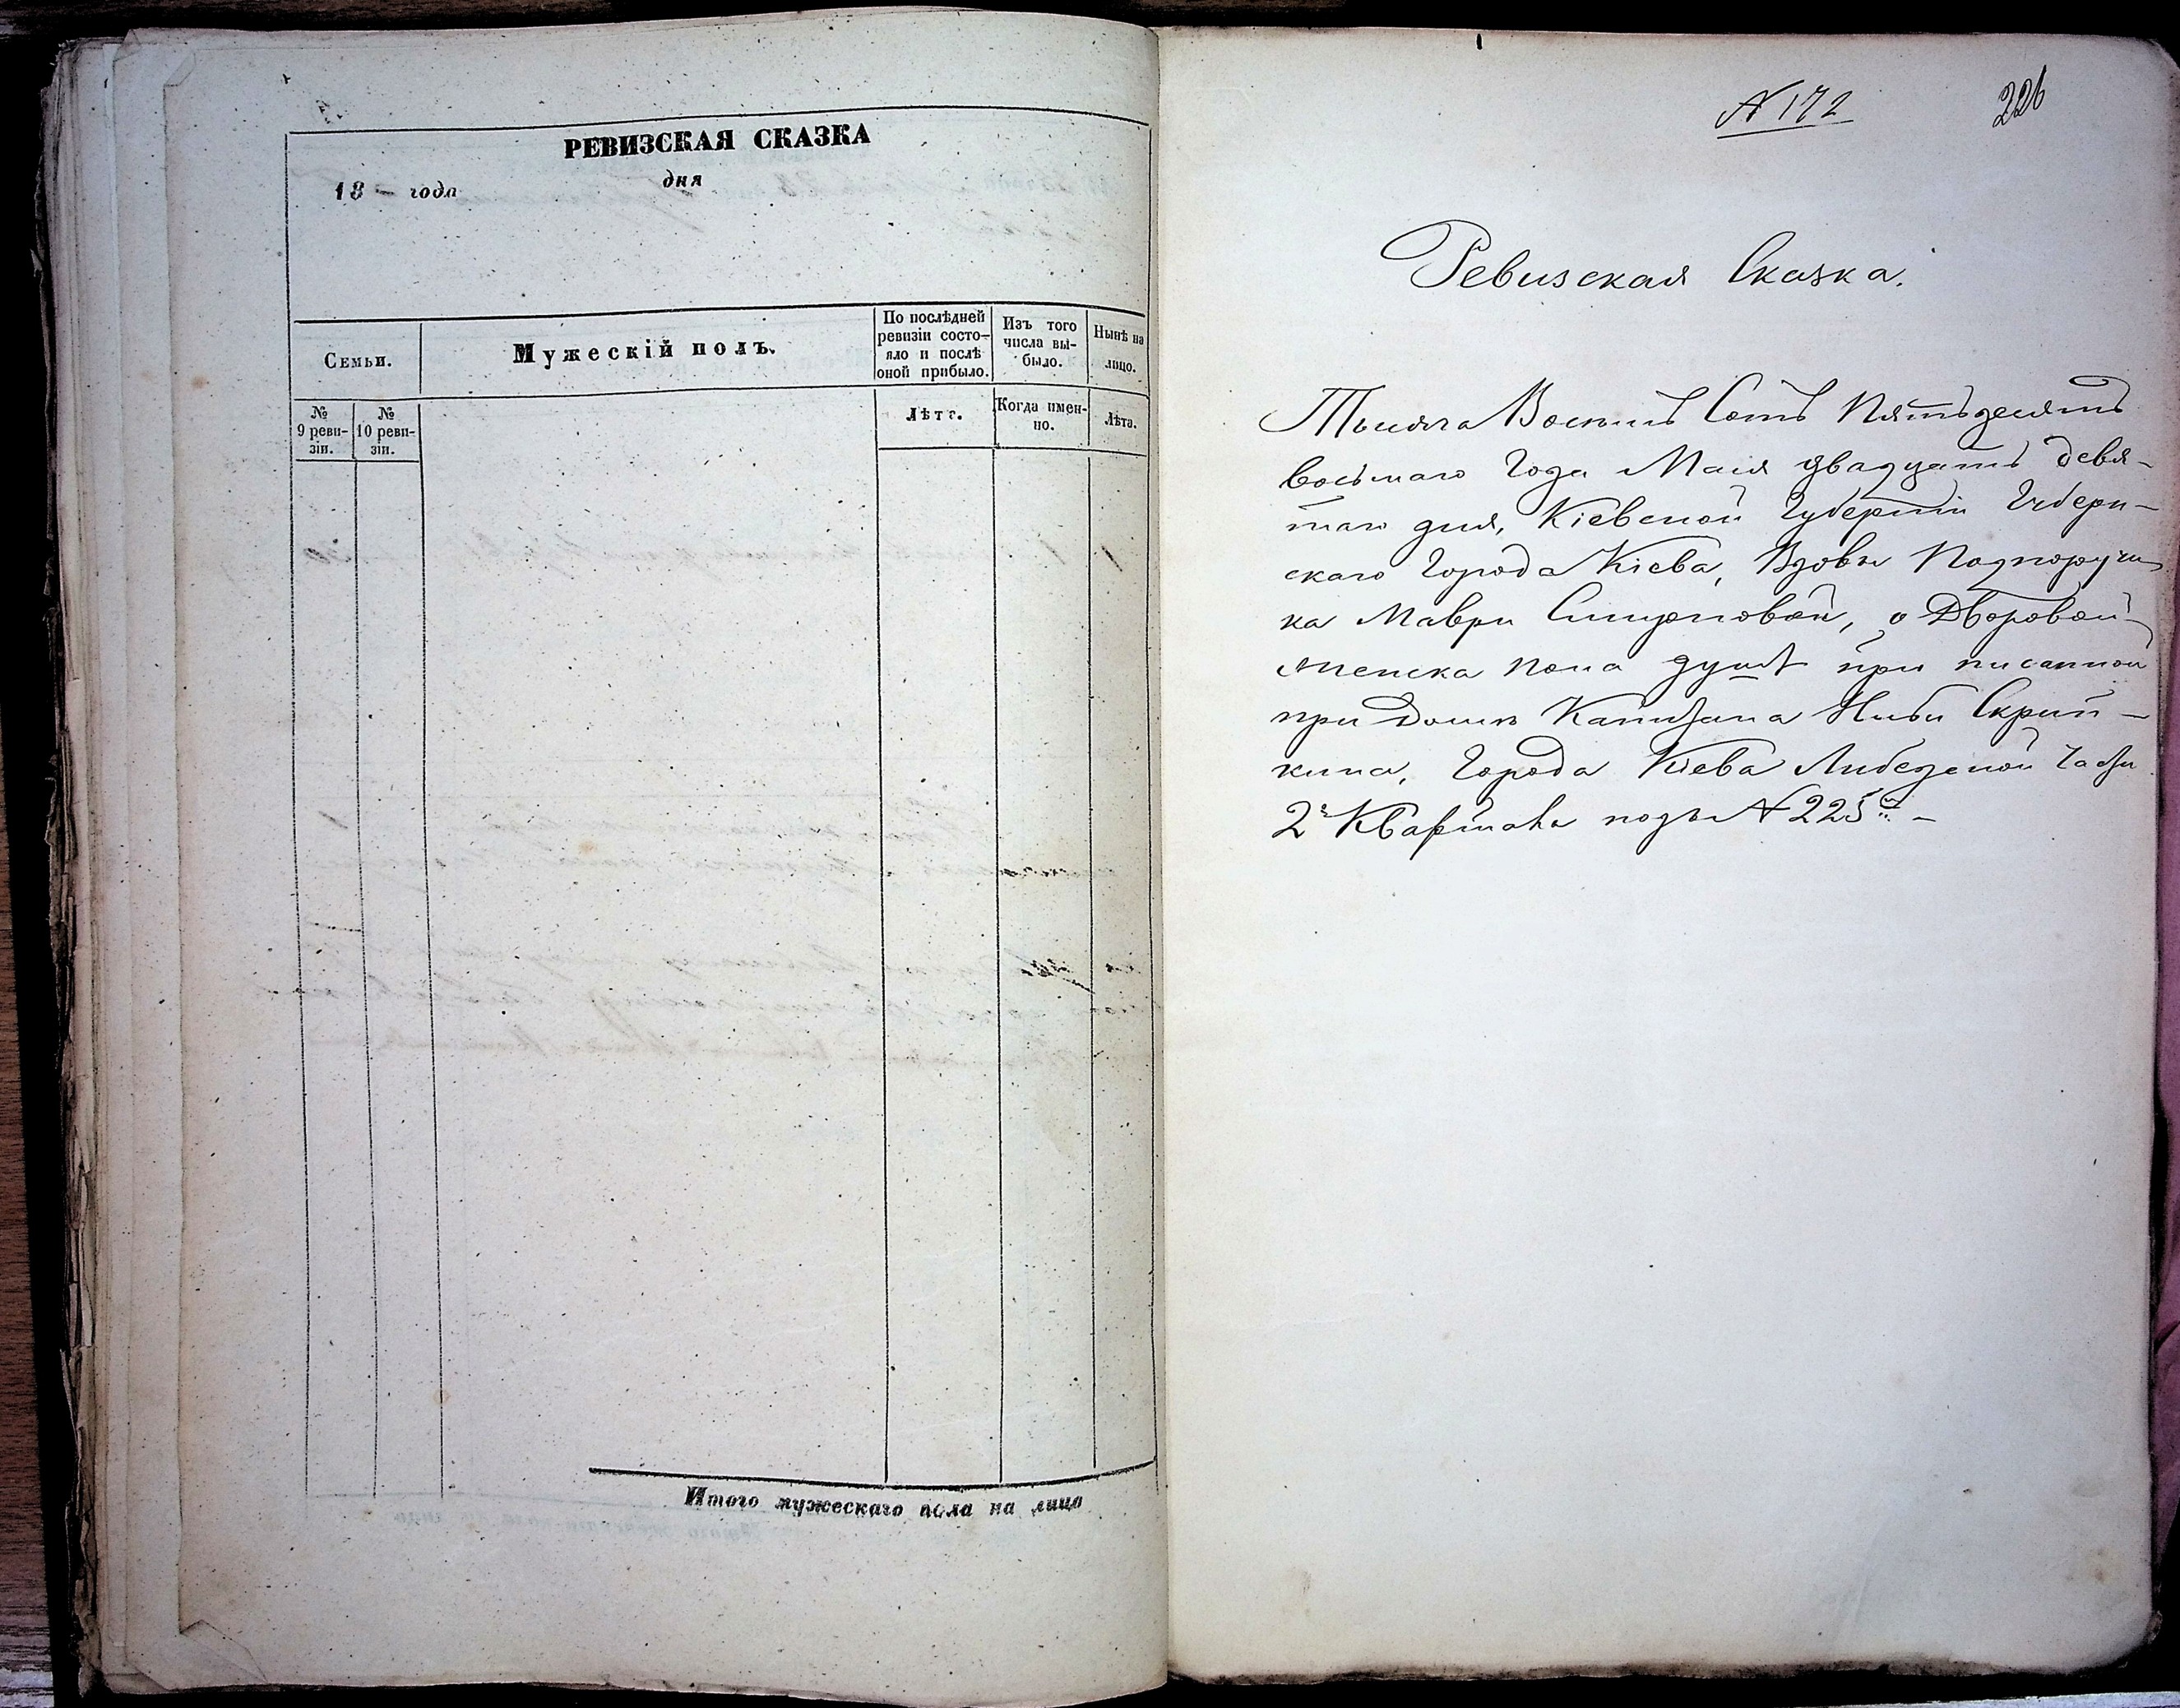 РЕВИЗСКАЯ СКАЗКА
18 — года
дня
Семьи.
Мужескій полъ.
По послѣдней
ревизіи состо-
яло и послѣ
оной прибыло.
Изъ того
числа вы-
было.
Нынѣ на
лицо.
№
9 реви-
зіи.
№
10 реви-
зіи.
Лѣта.
Когда имен-
но.
Лѣта.
Итого мужескаго пола на лицо
№ 172
226
Ревизская Сказка.
Тысяча Восемь Сотъ Пятьдесятъ
восьмаго Года Маія двадцать девя-
таго дня, Кіевской Губерніи Губерн-
скаго Города Кіева, Вдовы Подпоручи
ка Маври Смирновой, о Дворовой
женска пола душѣ при писанной
при Домѣ Капитана Скрип-
кина, Города Кіева Либедской Части
2й Квартала подъ № 225м —